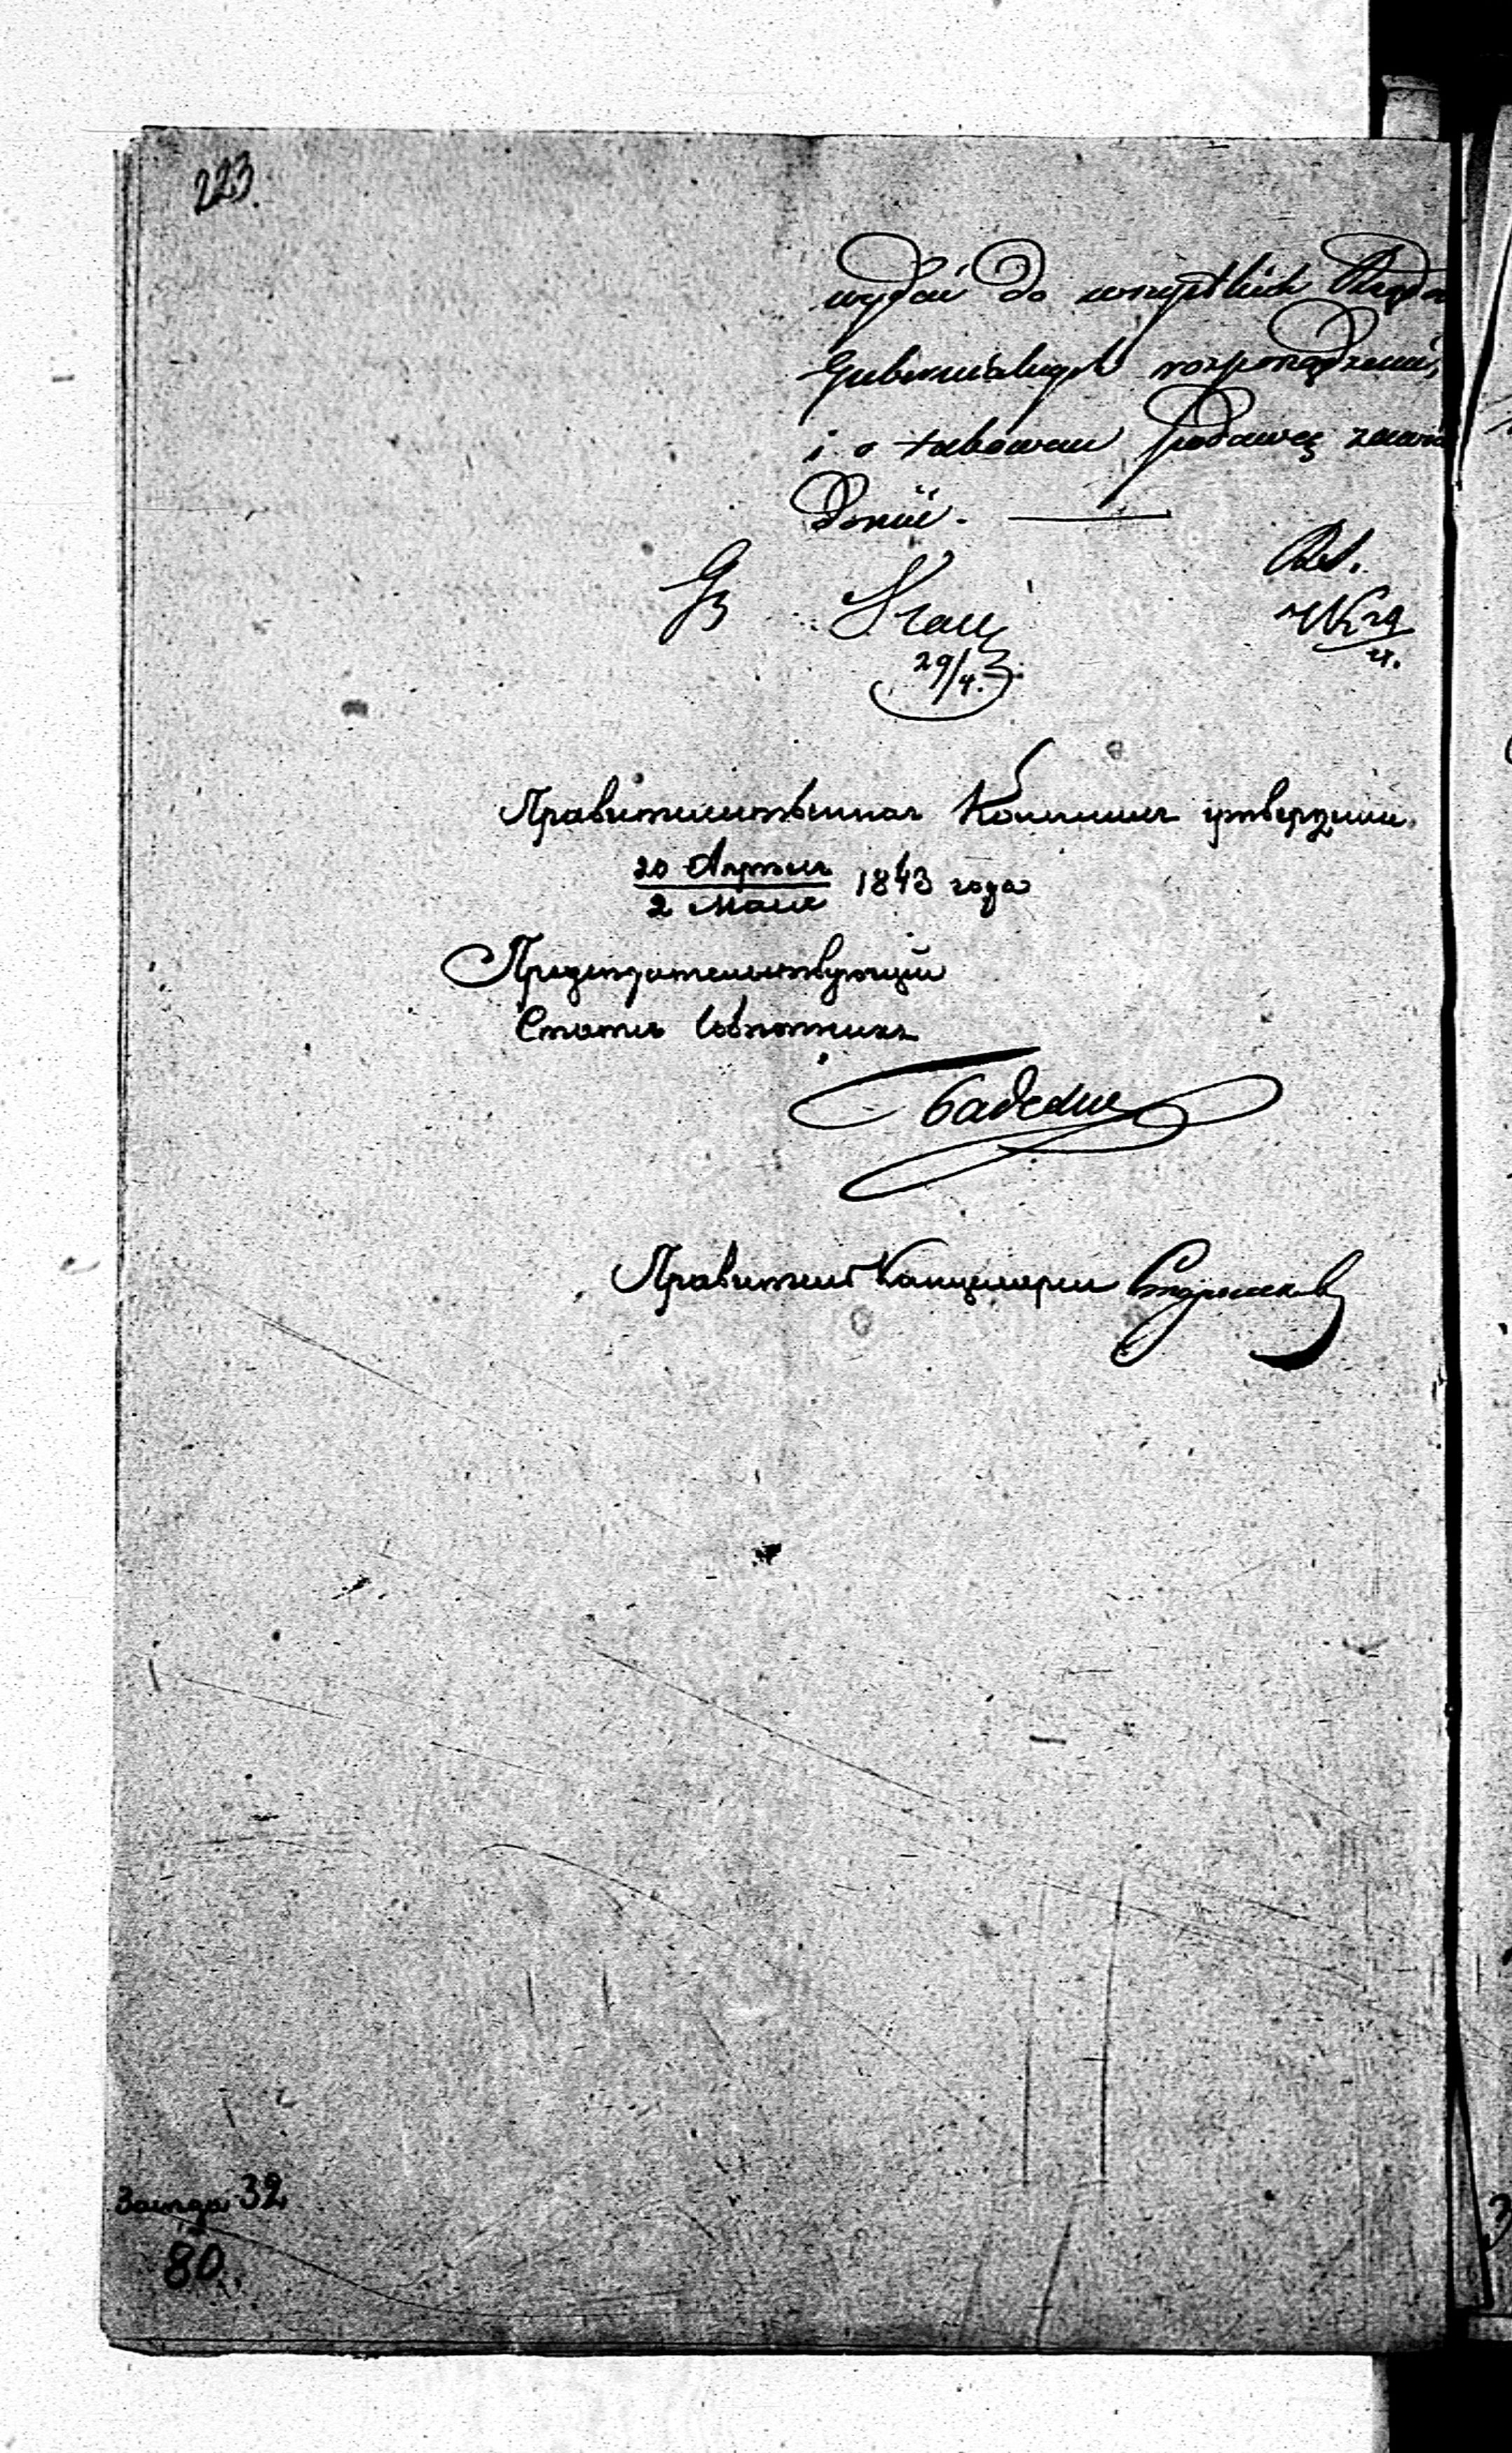 223.
wydać do wszystkich Rządów
Gubernialnych rozporządzenie,
i o takowem podawcę zawia
domić.
29/4.
Правительственная Коммисія утвердила
20 Апрѣля
2 Мая 1843 года
Предсѣдательствующій
Статсъ Совѣтникъ
Правитель Канцеляріи
Засѣд. 32
80